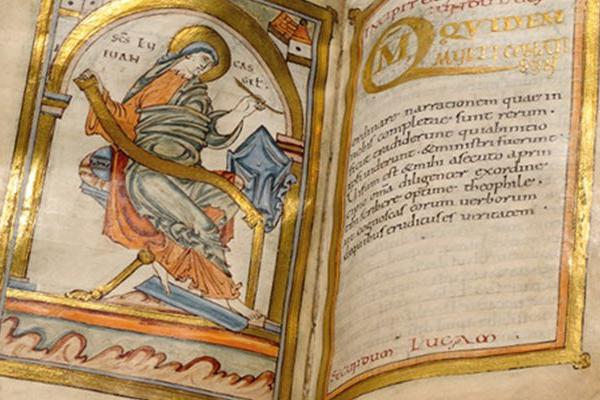 SCS LU CAS
EUAN GEL·
INCIPIT
QUIDEM
MULTI CONATI
SUNT
ordinare narrationem quae in
nobis completae sunt rerum·
sicut tradiderunt quiabinitio
ipsi uiderunt· &ministri fuerunt·
Uisum est &mihi asecuto aprin
cipio omia diligenter exordine·
tibi scribere optime theophile·
ut cognoscas eorum uerborum
dequibus eruditus es ueritatem
secundum LUCAM